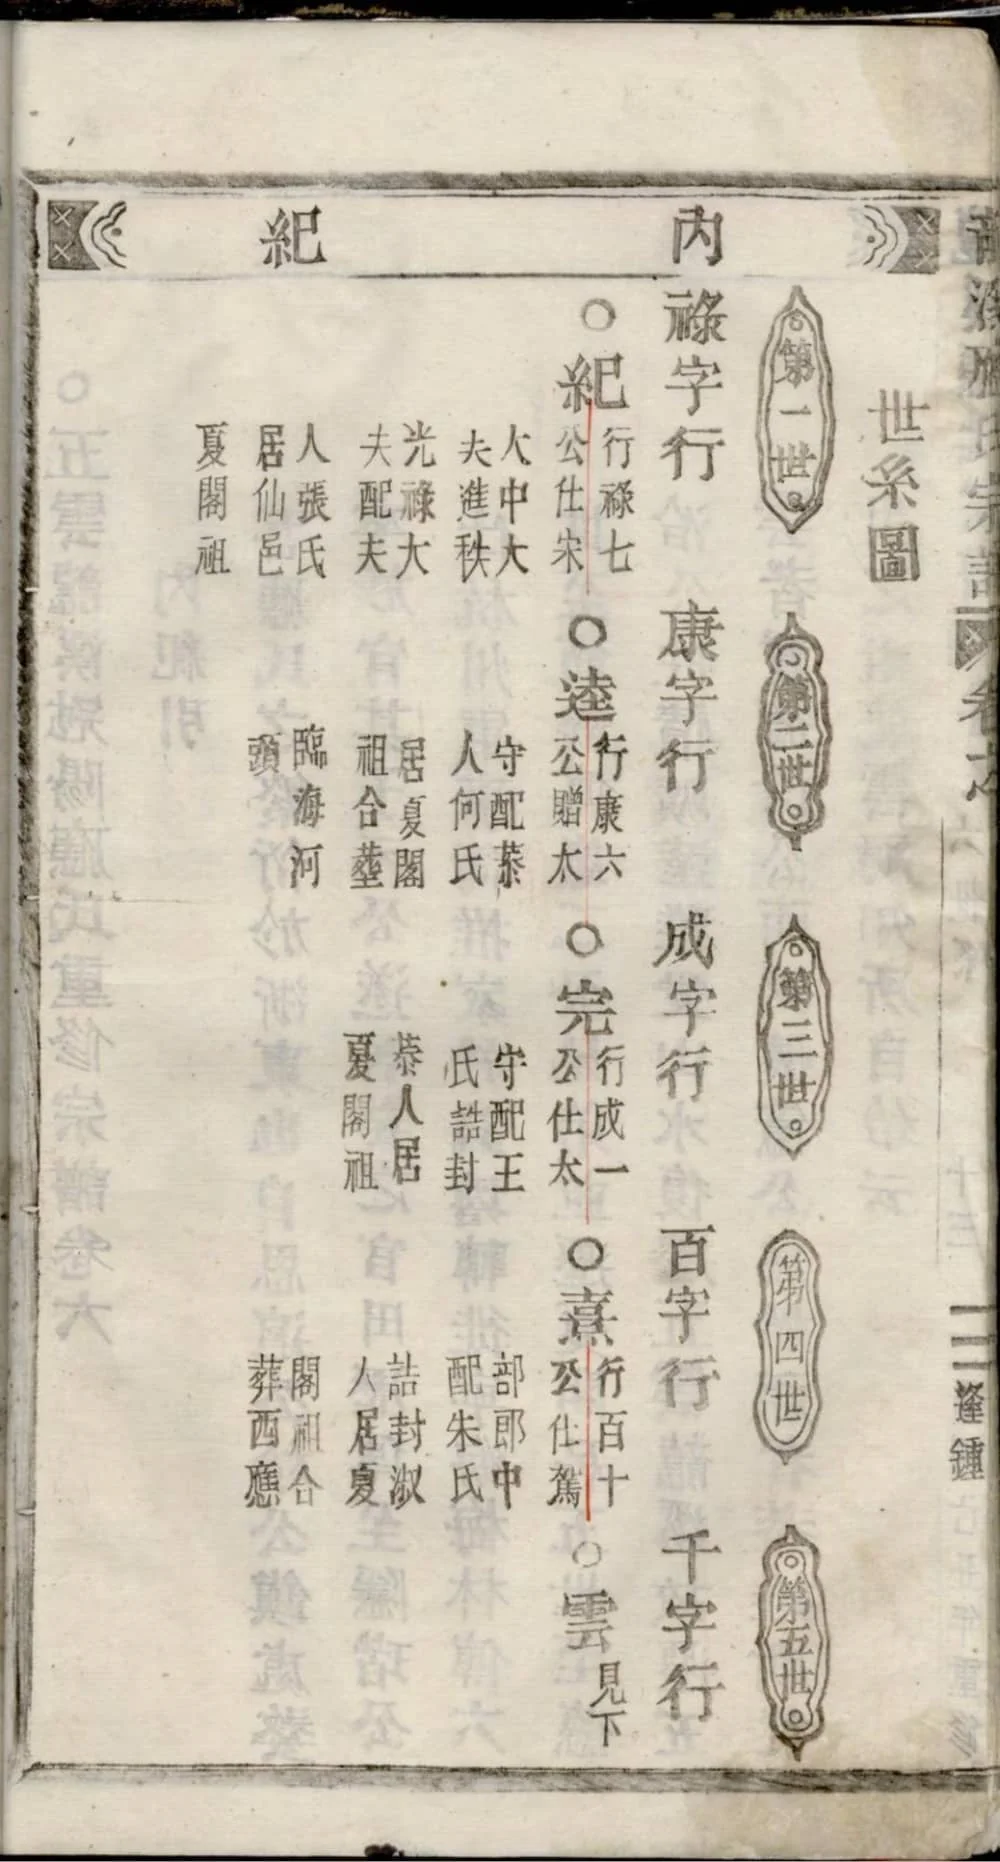 內紀
世系圖
第一世
第二世
第三世
第四世
第五世
祿字行
康字行
成字行
百字行
千字行
○紀
行祿七
公仕宋
大中大
夫進秩
光祿大
夫配夫
人張氏
居仙邑
夏閣祖
○逵
行康六
公贈太
守配恭
人何氏
居夏閣
祖合塟
臨海河
頭
○完
行成一
公仕太
守配王
氏誥封
恭人居
夏閣祖
○熹
行百十
公仕駕
部郎中
配朱氏
誥封淑
人居夏
閣祖合
葬西應
○雲
見下
卷六
逢鍾